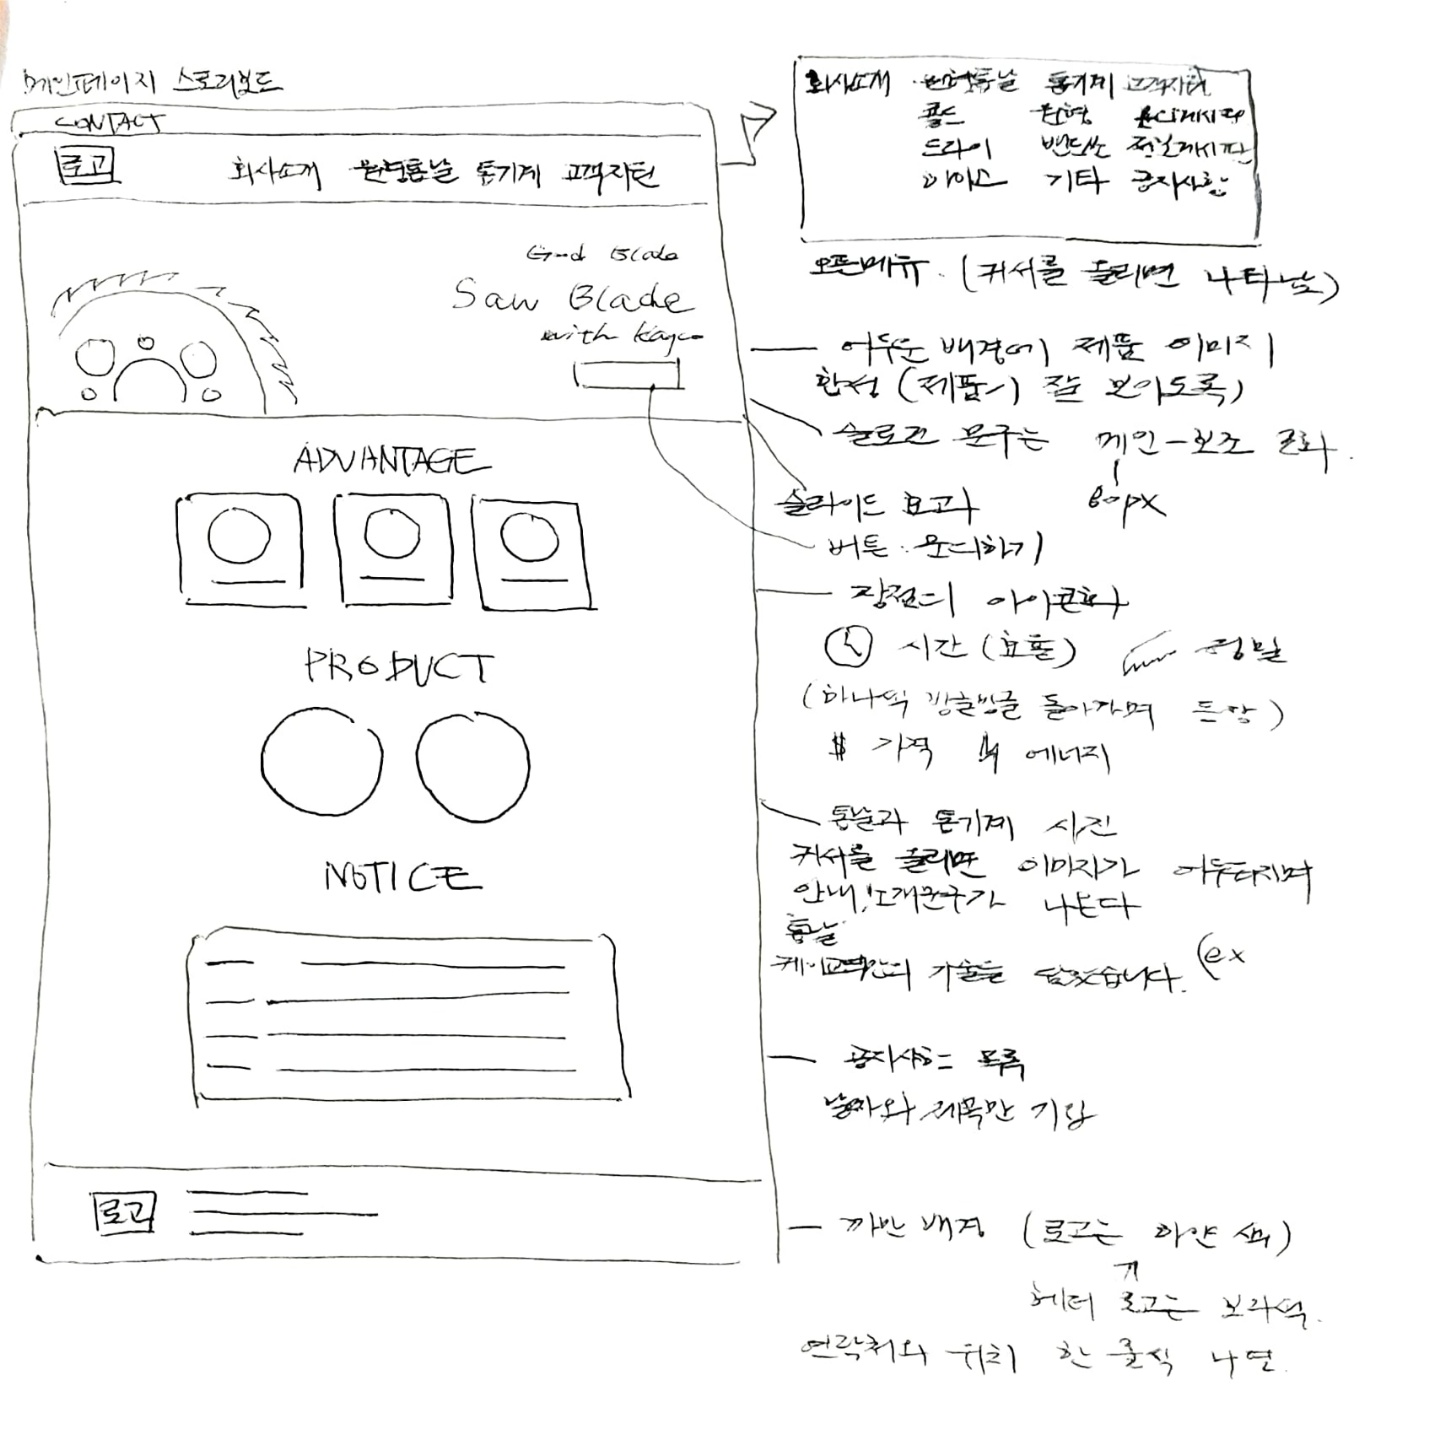 메인페이지 스토리보드
CONTACT
로고
회사소개 원형톱날 톱기계 고객지원
Good Blade
Saw Blade
with Kayco
ADVANTAGE
PRODUCT
NOTICE
로고
회사소개 원형톱날 톱기계 고객지원
콜드 원형 문의게시판
드라이 밴드쏘 질문게시판
다이아 기타 공지사항
오픈메뉴. (커서를 올리면 나타남)
어두운 배경에 제품 이미지
환성 (제품이 잘 보이도록)
슬로건 문구는 메인-보조 조화.
60px
슬라이드 효과
버튼. 문의하기
장점의 아이콘화
시간 (효율) 정밀
(하나씩 빙글빙글 돌아가며 등장)
$ 가격 에너지
톱날과 톱기계 사진
커서를 올리면 이미지가 어두워지며
안내, 소개문구가 나온다
톱날
기술을 담았습니다. (ex
공지사항 목록
날짜와 제목만 기입
까만 배경 (로고는 하얀색)
헤더 로고는 보라색.
연락처와 위치 한 줄씩 나열.